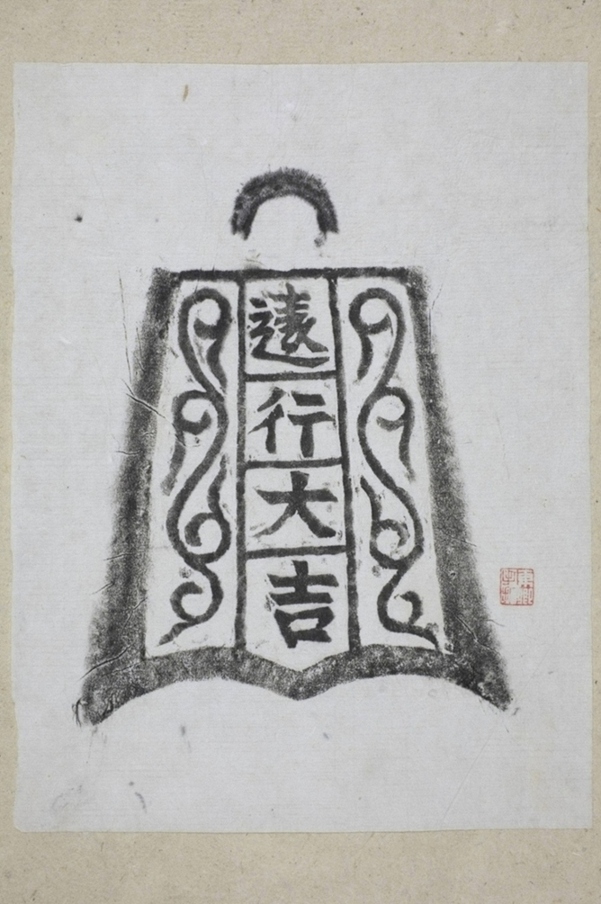 遠行大吉